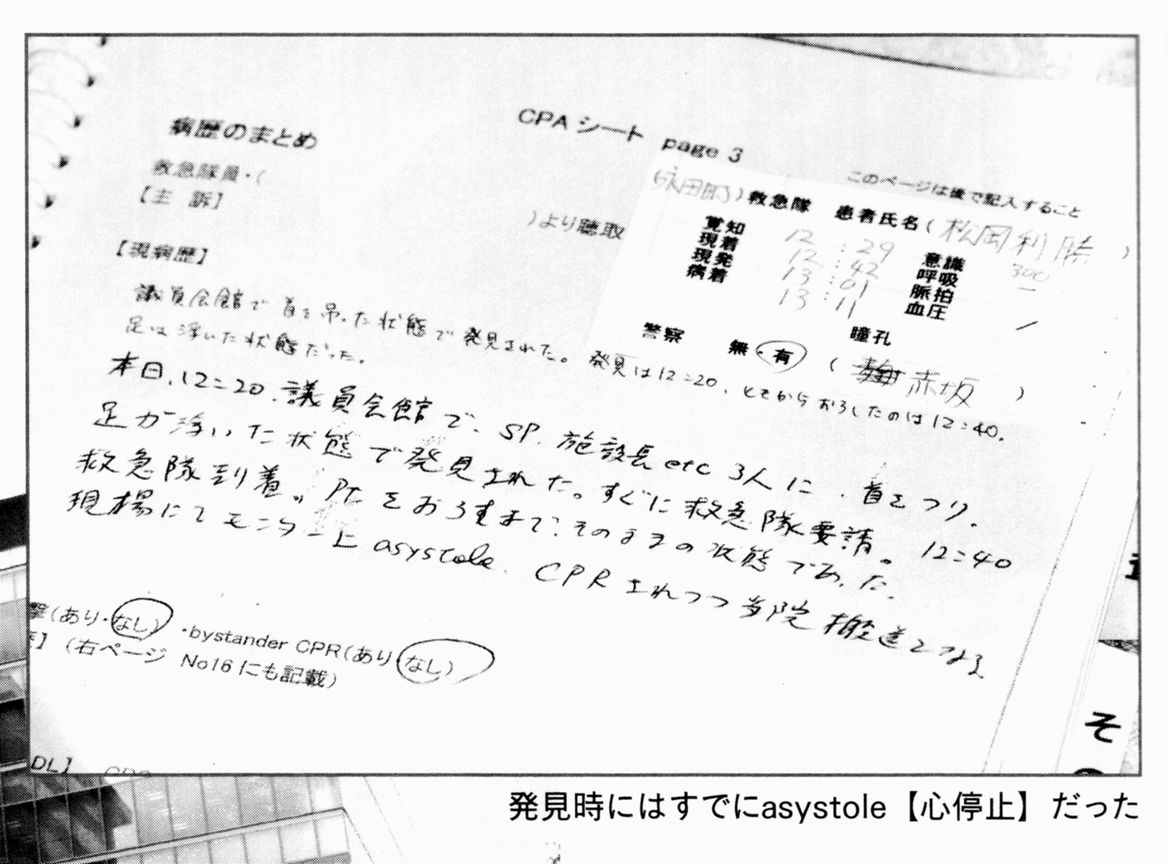 病歴のまとめ
CPA シート page 3
救急隊員・(
)より聴取
【主 訴】
【現病歴】
このページは後で記入すること
(永田町)救急隊 患者氏名(松岡利勝)
覚知 12:29 意識 300
現着 12:42 呼吸 —
現発 13:01 脈拍
病着 13:11 血圧
瞳孔
警察 無・有 ( 赤坂 )
議員会館で首を吊った状態で発見された。発見は12:20、そこからおろしたのは12:40.
足は浮いた状態だった。
本日、12:20、議員会館で、SP、施設長etc 3人に、首をつり、
足が浮いた状態で発見された。すぐに救急隊要請。12:40
救急隊到着。Pt をおろすまで、そのままの状態であった。
現場にてモニター上 asystole. CPRされつつ当院搬送となる
撃(あり・なし) ・bystander CPR(あり・なし)
】(右ページ No16にも記載)
DL】
そ
発見時にはすでにasystole【心停止】だった